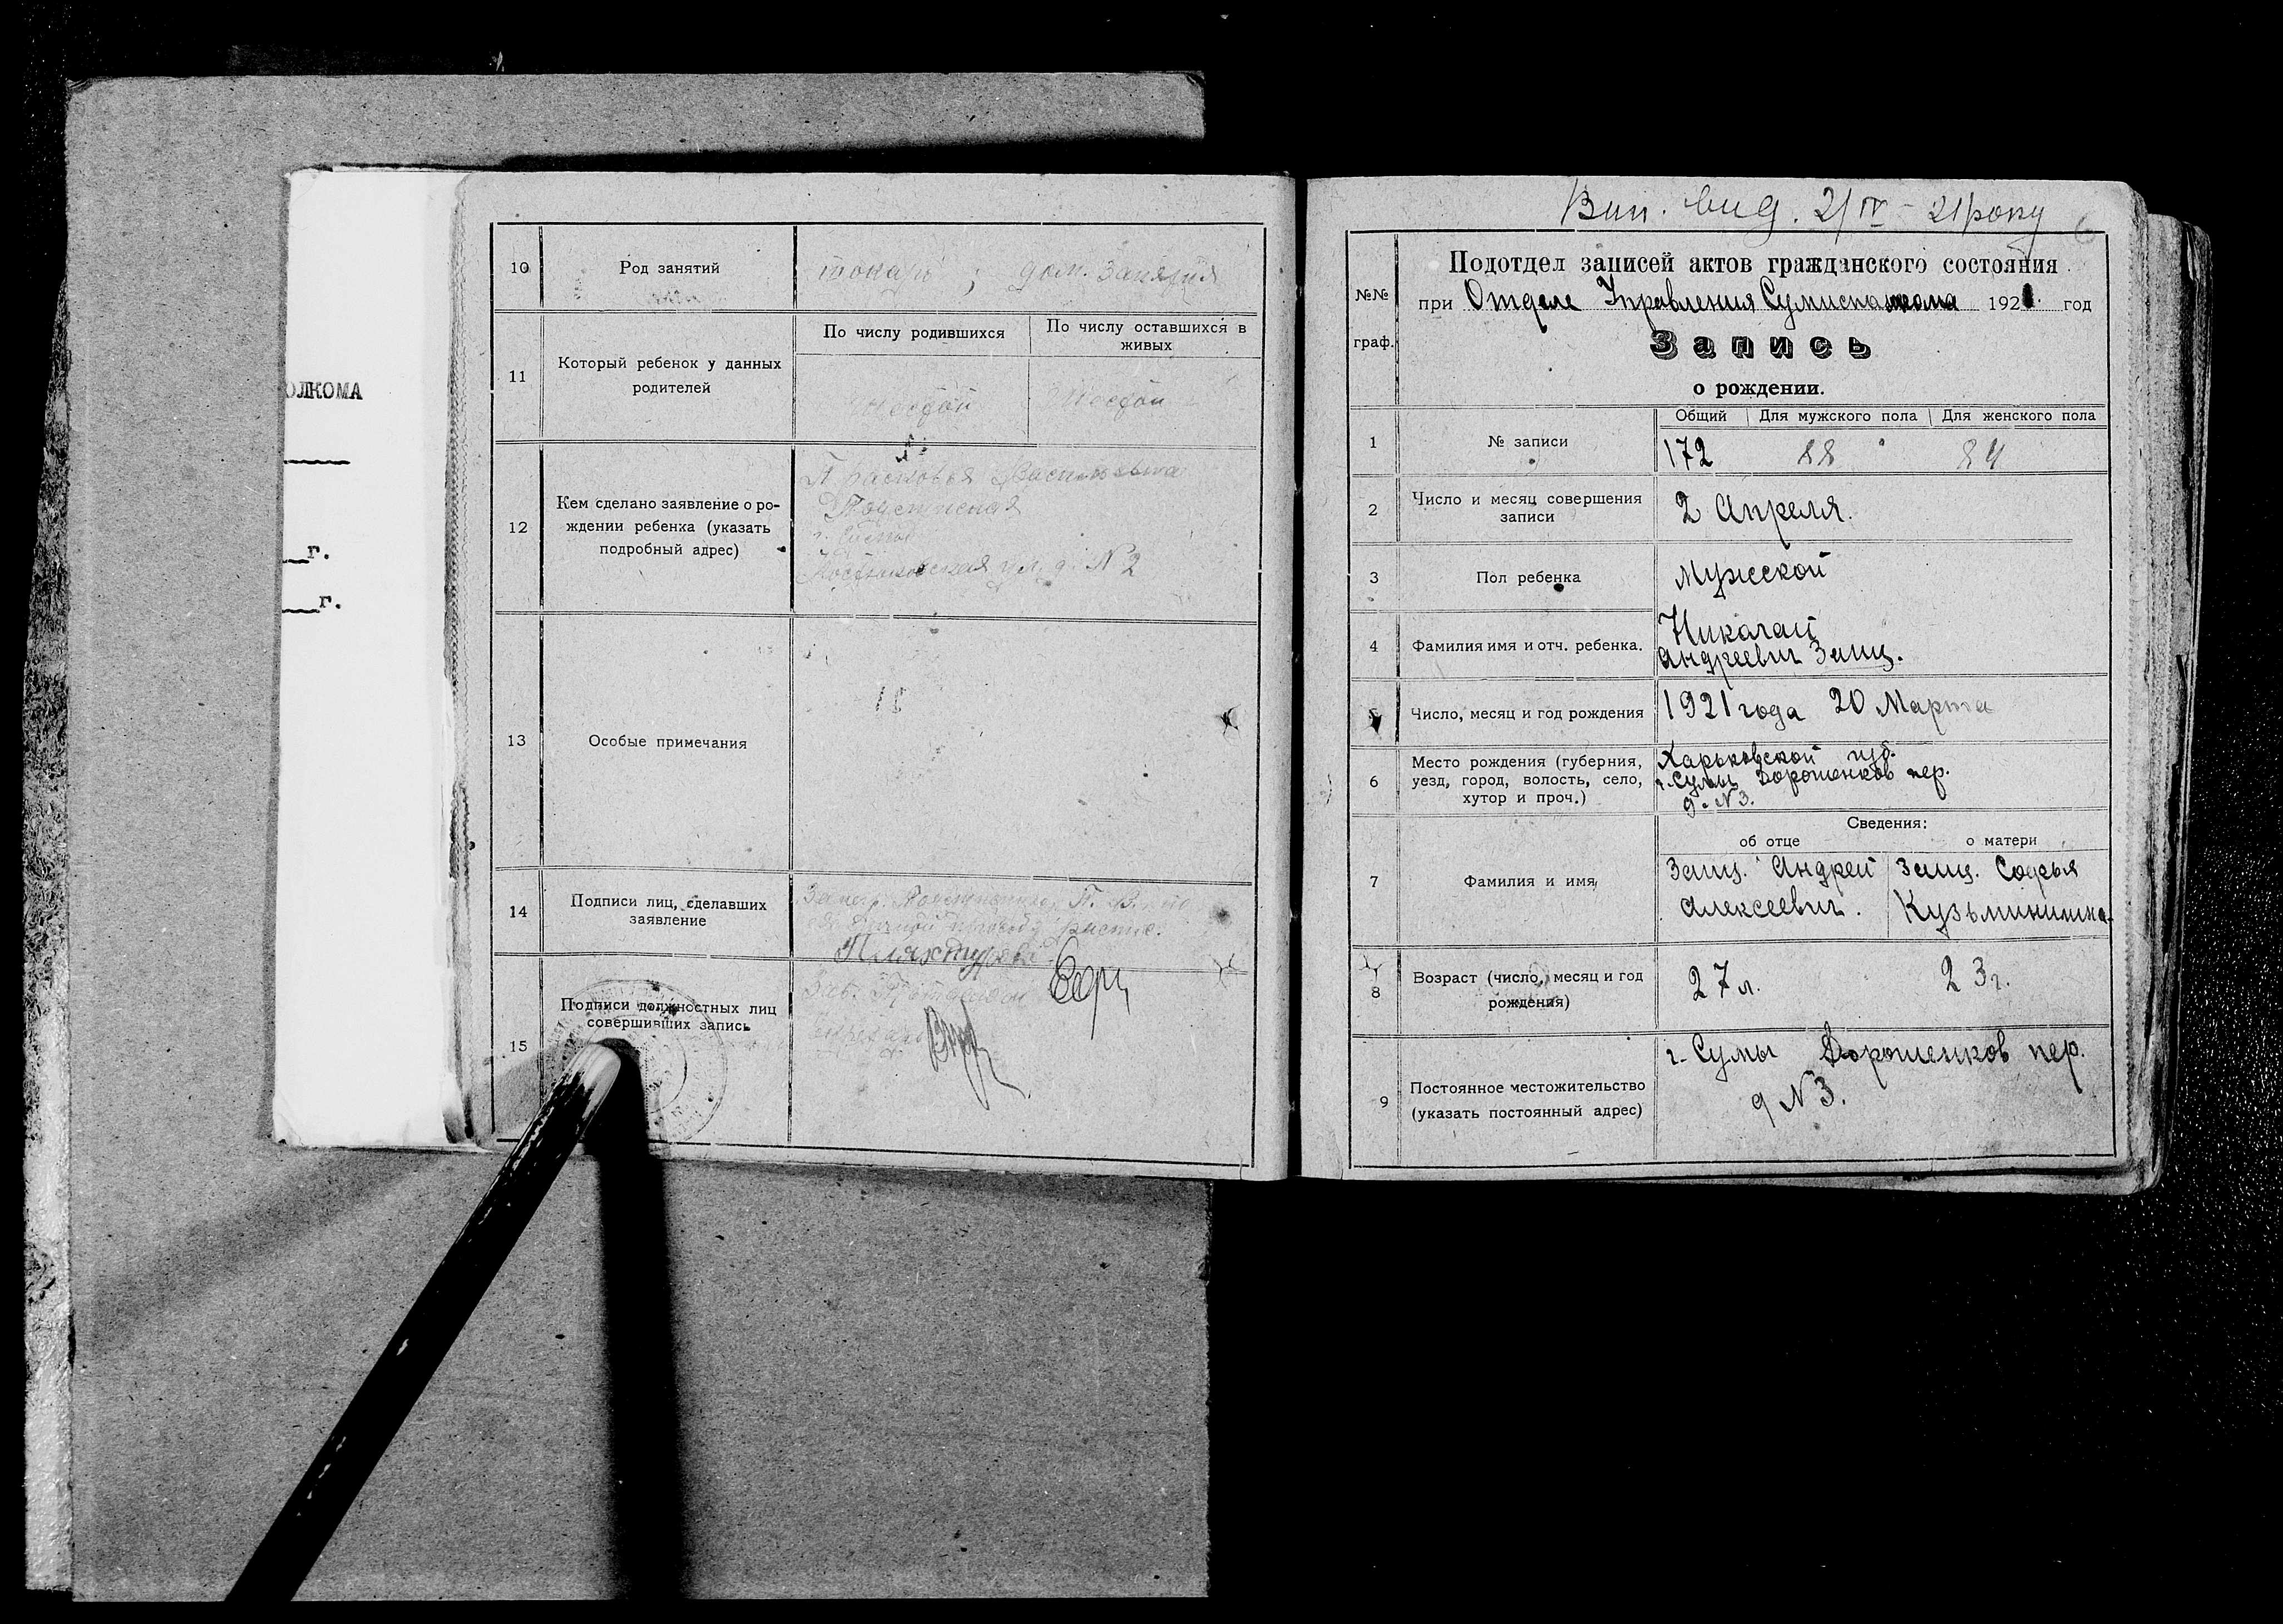 ОЛКОМА
г.
г.
10 Род занятий токарь; дом. занятия
11 Который ребенок у данных родителей
По числу родившихся
По числу оставшихся в живых
шестой шестой
12 Кем сделано заявление о ро-
ждении ребенка (указать
подробный адрес)
Прасковья Васильевна
г. Сумы
ул. д. № 2
13 Особые примечания
14 Подписи лиц, сделавших
заявление
15 Подписи должностных лиц
совершивших запись
Вип. вид. 2/IV - 21 року
6
Подотдел записей актов гражданского состояния
№№
граф.
при Отделе Управления Сумисполкома 1921 год
Запись
о рождении.
Общий Для мужского пола Для женского пола
1 № записи 172 88 84
2 Число и месяц совершения
записи
2 Апреля.
3 Пол ребенка Мужской
4 Фамилия имя и отч. ребенка.
Николай
Андреевич Заиц.
5 Число, месяц и год рождения 1921 года 20 Марта
6 Место рождения (губерния,
уезд, город, волость, село,
хутор и проч.)
Харьковской губ.
г. Сумы Дорошенков пер.
д. №3.
Сведения:
об отце о матери
7 Фамилия и имя
Заиц. Андрей
Алексеевич.
Заиц. Софья
Кузьминишна
8 Возраст (число, месяц и год
рождения)
27 л. 23 г.
9 Постоянное местожительство
(указать постоянный адрес)
г. Сумы Дорошенков пер.
д №3.